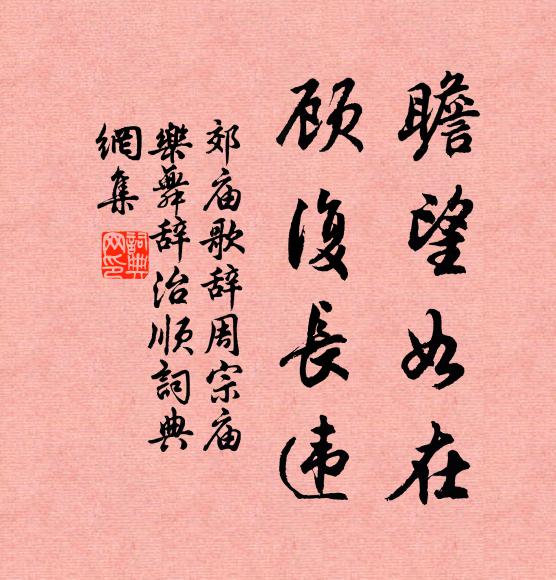 瞻望如在
顾復長违
郊庙歌辞周宗庙
樂舞辞治顺詞典
網集
詞典网印